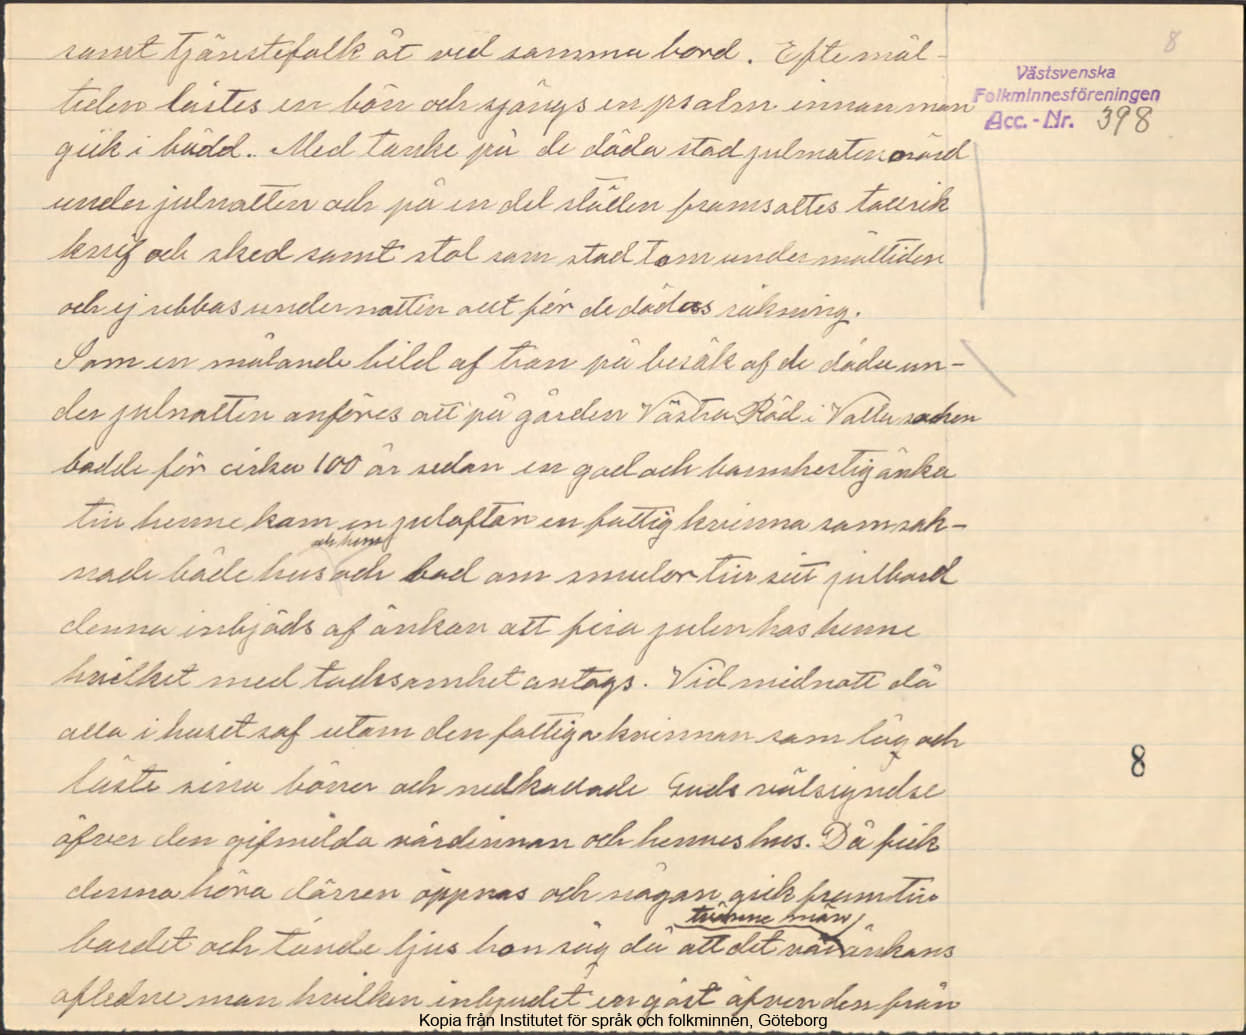 8
Västsvenska
Folkminnesföreningen
Acc. - Nr. 398
samt tjänstefolk åt ved samma bord. Efte mål-
tiden lästes en bön och sjöngs en psalm innan man
gick i bädd. Med tanke på de döda stod julmaten orörd
under julnatten och på en del ställen framsattes tallrik
knif och sked samt stol som stod tom under måltiden
och ej rubbas under natten allt för de dödas räkning.
Som en målande bild af tron på besök af de döda un-
der julnatten anföres att på gården Västra Röd i Valla socken
bodde för cirka 100 år sedan en god och barmhertig änka
till henne kom en julafton en fattig kvinna som sak-
och hem
nade både hus och bad om smulor till sitt julbord
denna inbjöds af änkan att fira julen hos henne
hvilket med tacksamhet antogs. Vid midnatt då
alla i huset sof utom den fattiga kvinnan som låg och
läste sina böner och nedkallade Guds välsignelse
öfver den gifmilda värdinnan och hennes hus. Då fick
denna höra dörren öppnas och någon gick fram till
tvänne män
bordet och tände ljus hon såg då att det var änkans
aflidne man hvilken inbjudet en gäst äfven den från
8
Kopia från Institutet för språk och folkminnen, Göteborg